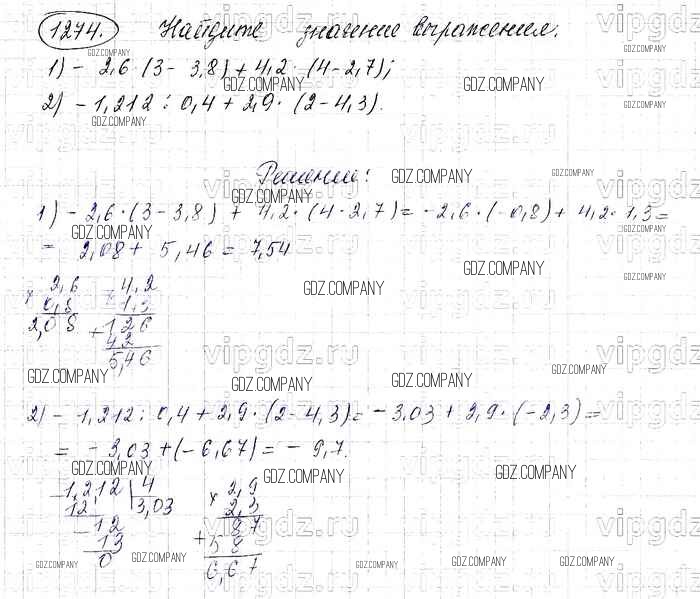 1274. Найдите значение выражения.
1) - 2,6 · (3 - 3,8) + 4,2 · (4 - 2,7);
2) - 1,212 : 0,4 + 2,9 · (2 - 4,3).
Решение:
1) - 2,6 · (3 - 3,8) + 4,2 · (4 - 2,7) = - 2,6 · (- 0,8) + 4,2 · 1,3 =
= 2,08 + 5,46 = 7,54
× 2,6 × 4,2
0,8 1,3
2,08 + 126
42
5,46
2) - 1,212 : 0,4 + 2,9 · (2 - 4,3) = - 3,03 + 2,9 · (- 2,3) =
= - 3,03 + (- 6,67) = - 9,7.
- 1,212 | 4 × 2,9
12 3,03 2,3
- 12 + 87
13 58
0 6,67
vipgdz.ru
GDZ.COMPANY